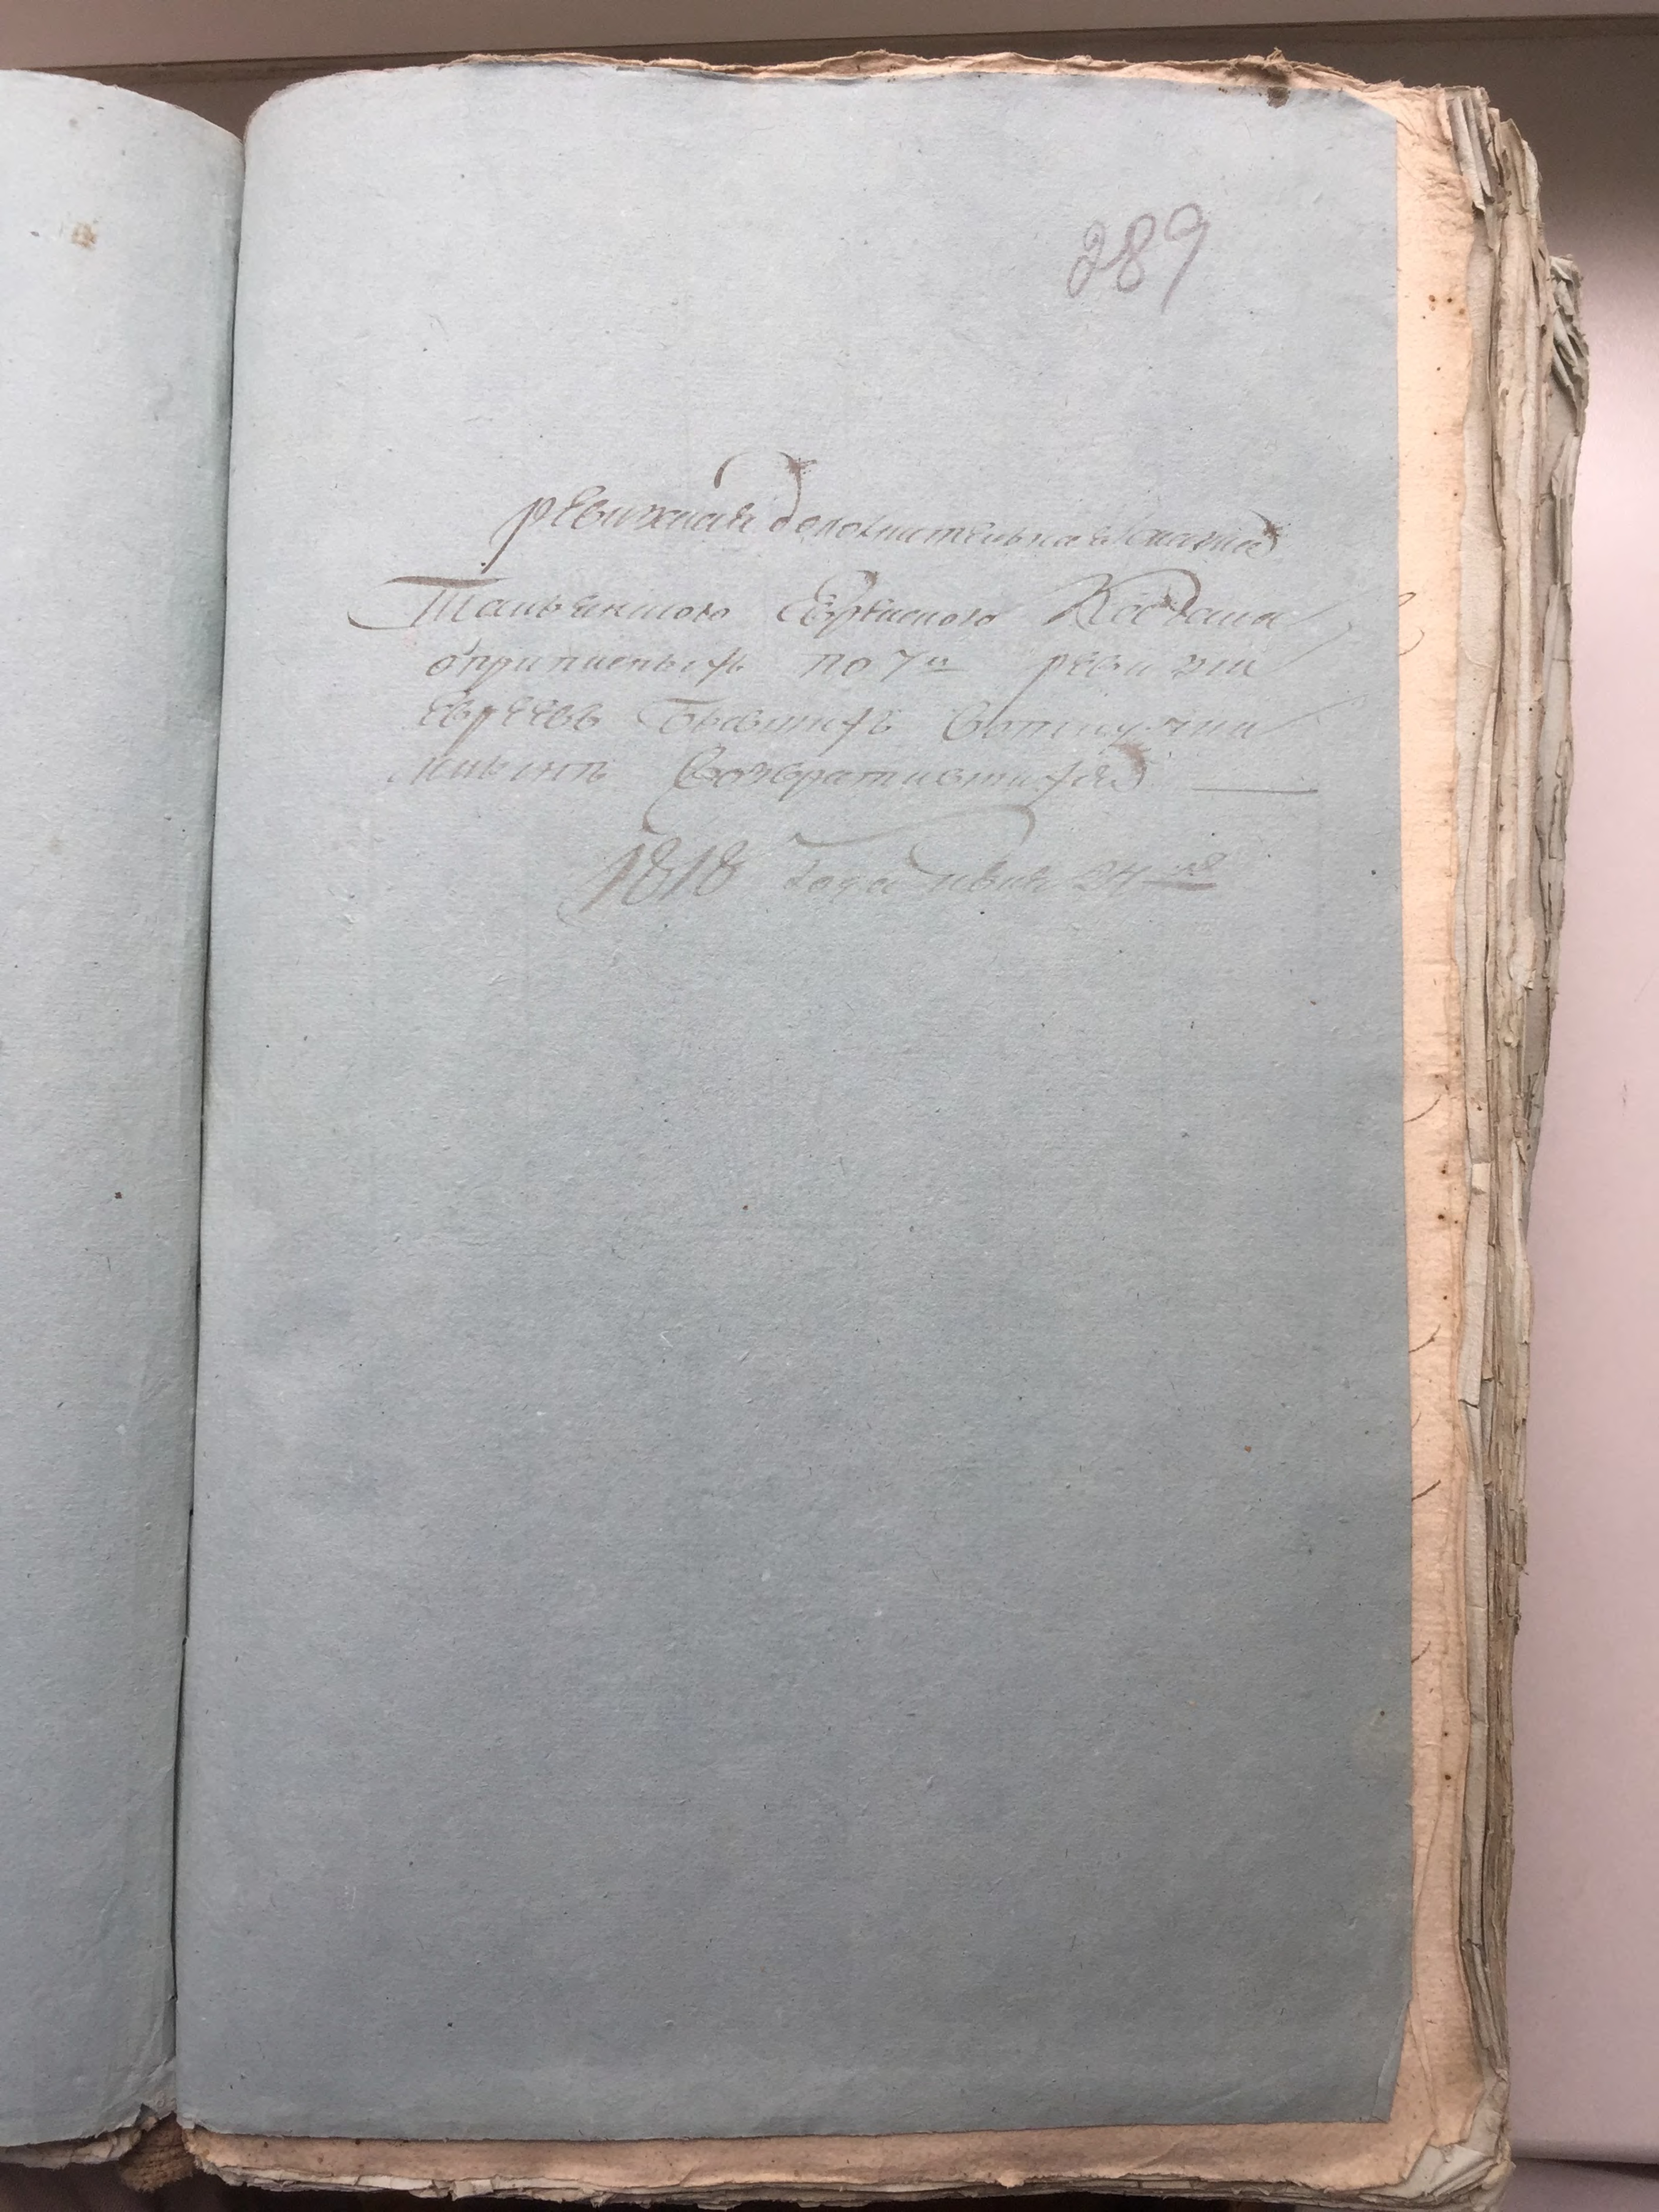 289
ревижная дополнительная сказка
Тальянского Еврейского Кагала
о приписных по 7й ревизии
Евреев бывших в отлучки
и ныне возвратившихся
1818 Года июня 24 дня